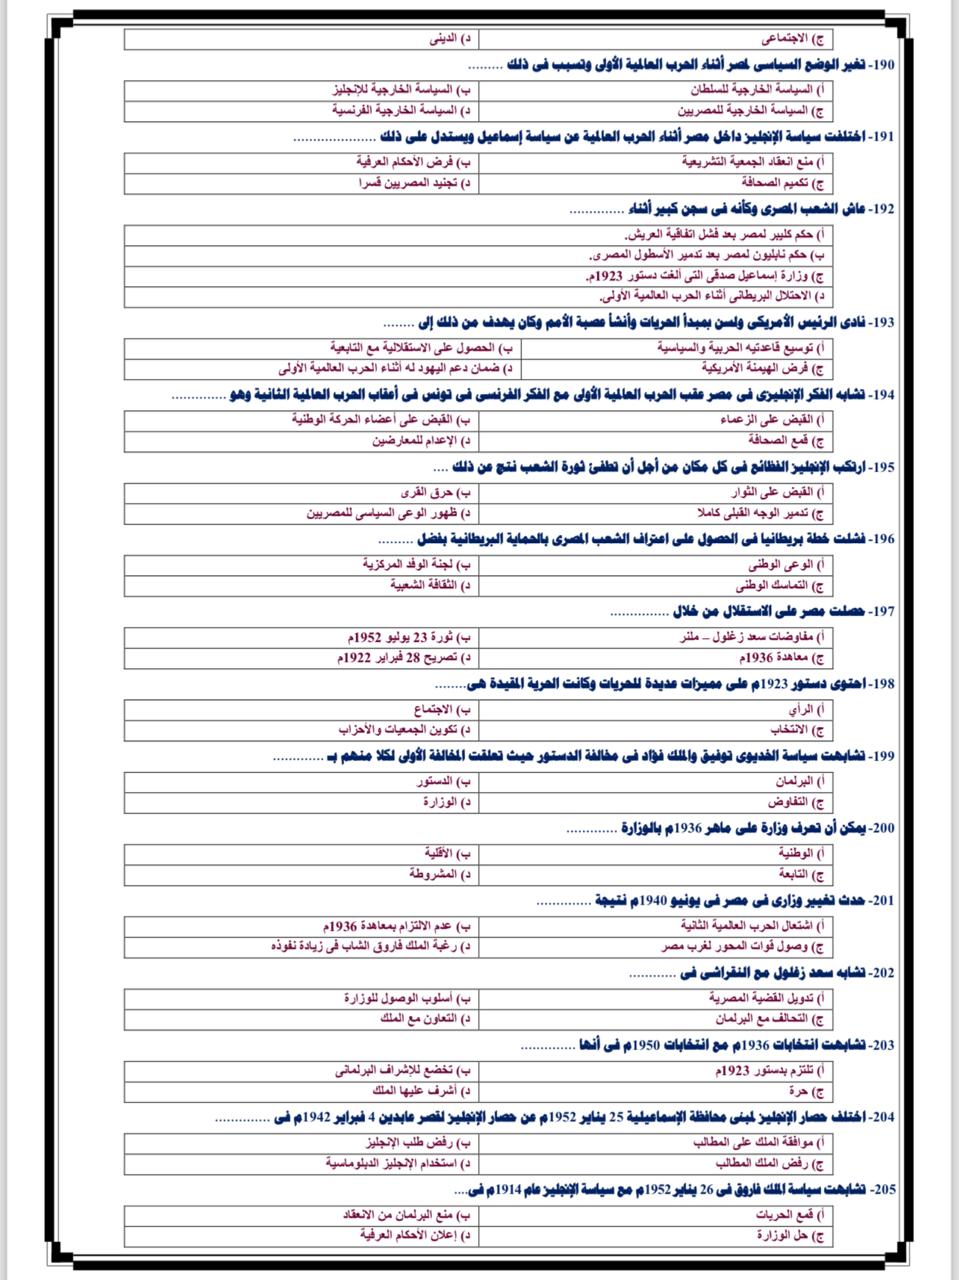 ج) الاجتماعى د) الدينى
190- تغير الوضع السياسى لمصر أثناء الحرب العالمية الأولى وتسبب فى ذلك .........
أ) السياسة الخارجية للسلطان ب) السياسة الخارجية للإنجليز
ج) السياسة الخارجية للمصريين د) السياسة الخارجية الفرنسية
191- اختلفت سياسة الإنجليز داخل مصر أثناء الحرب العالمية عن سياسة إسماعيل ويستدل على ذلك ....................
أ) منع انعقاد الجمعية التشريعية ب) فرض الأحكام العرفية
ج) تكميم الصحافة د) تجنيد المصريين قسرا
192- عاش الشعب المصرى وكأنه فى سجن كبير أثناء .............
أ) حكم كليبر لمصر بعد فشل اتفاقية العريش.
ب) حكم نابليون لمصر بعد تدمير الأسطول المصرى.
ج) وزارة إسماعيل صدقى التى ألغت دستور 1923م.
د) الاحتلال البريطانى أثناء الحرب العالمية الأولى.
193- نادى الرئيس الأمريكى ولسن بمبدأ الحريات وأنشأ عصبة الأمم وكان يهدف من ذلك إلى ........
أ) توسيع قاعدتيه الحربية والسياسية ب) الحصول على الاستقلالية مع التابعية
ج) فرض الهيمنة الأمريكية د) ضمان دعم اليهود له أثناء الحرب العالمية الأولى
194- تشابه الفكر الإنجليزى فى مصر عقب الحرب العالمية الأولى مع الفكر الفرنسى فى تونس فى أعقاب الحرب العالمية الثانية وهو .............
أ) القبض على الزعماء ب) القبض على أعضاء الحركة الوطنية
ج) قمع الصحافة د) الإعدام للمعارضين
195- ارتكب الإنجليز الفظائع فى كل مكان من أجل أن تطفئ ثورة الشعب نتج عن ذلك ....
أ) القبض على الثوار ب) حرق القرى
ج) تدمير الوجه القبلى كاملا د) ظهور الوعى السياسى للمصريين
196- فشلت خطة بريطانيا فى الحصول على اعتراف الشعب المصرى بالحماية البريطانية بفضل ........
أ) الوعى الوطنى ب) لجنة الوفد المركزية
ج) التماسك الوطنى د) الثقافة الشعبية
197- حصلت مصر على الاستقلال من خلال ..............
أ) مفاوضات سعد زغلول – ملنر ب) ثورة 23 يوليو 1952م
ج) معاهدة 1936م د) تصريح 28 فبراير 1922م
198- احتوى دستور 1923م على مميزات عديدة للحريات وكانت الحرية المقيدة هى........
أ) الرأي ب) الاجتماع
ج) الانتخاب د) تكوين الجمعيات والأحزاب
199- تشابهت سياسة الخديوى توفيق والملك فؤاد فى مخالفة الدستور حيث تعلقت المخالفة الأولى لكلا منهم بـ ............
أ) البرلمان ب) الدستور
ج) التفاوض د) الوزارة
200- يمكن أن تعرف وزارة على ماهر 1936م بالوزارة ............
أ) الوطنية ب) الأقلية
ج) التابعة د) المشروطة
201- حدث تغيير وزارى فى مصر فى يونيو 1940م نتيجة .............
أ) اشتعال الحرب العالمية الثانية ب) عدم الالتزام بمعاهدة 1936م
ج) وصول قوات المحور لغرب مصر د) رغبة الملك فاروق الشاب فى زيادة نفوذه
202- تشابه سعد زغلول مع النقراشى فى ...........
أ) تدويل القضية المصرية ب) أسلوب الوصول للوزارة
ج) التحالف مع البرلمان د) التعاون مع الملك
203- تشابهت انتخابات 1936م مع انتخابات 1950م فى أنها .............
أ) تلتزم بدستور 1923م ب) تخضع للإشراف البرلمانى
ج) حرة د) أشرف عليها الملك
204- اختلف حصار الإنجليز لمبنى محافظة الإسماعيلية 25 يناير 1952م عن حصار الإنجليز لقصر عابدين 4 فبراير 1942م فى .............
أ) موافقة الملك على المطالب ب) رفض طلب الإنجليز
ج) رفض الملك المطالب د) استخدام الإنجليز الدبلوماسية
205- تشابهت سياسة الملك فاروق فى 26 يناير 1952م مع سياسة الإنجليز عام 1914م فى....
أ) قمع الحريات ب) منع البرلمان من الانعقاد
ج) حل الوزارة د) إعلان الأحكام العرفية